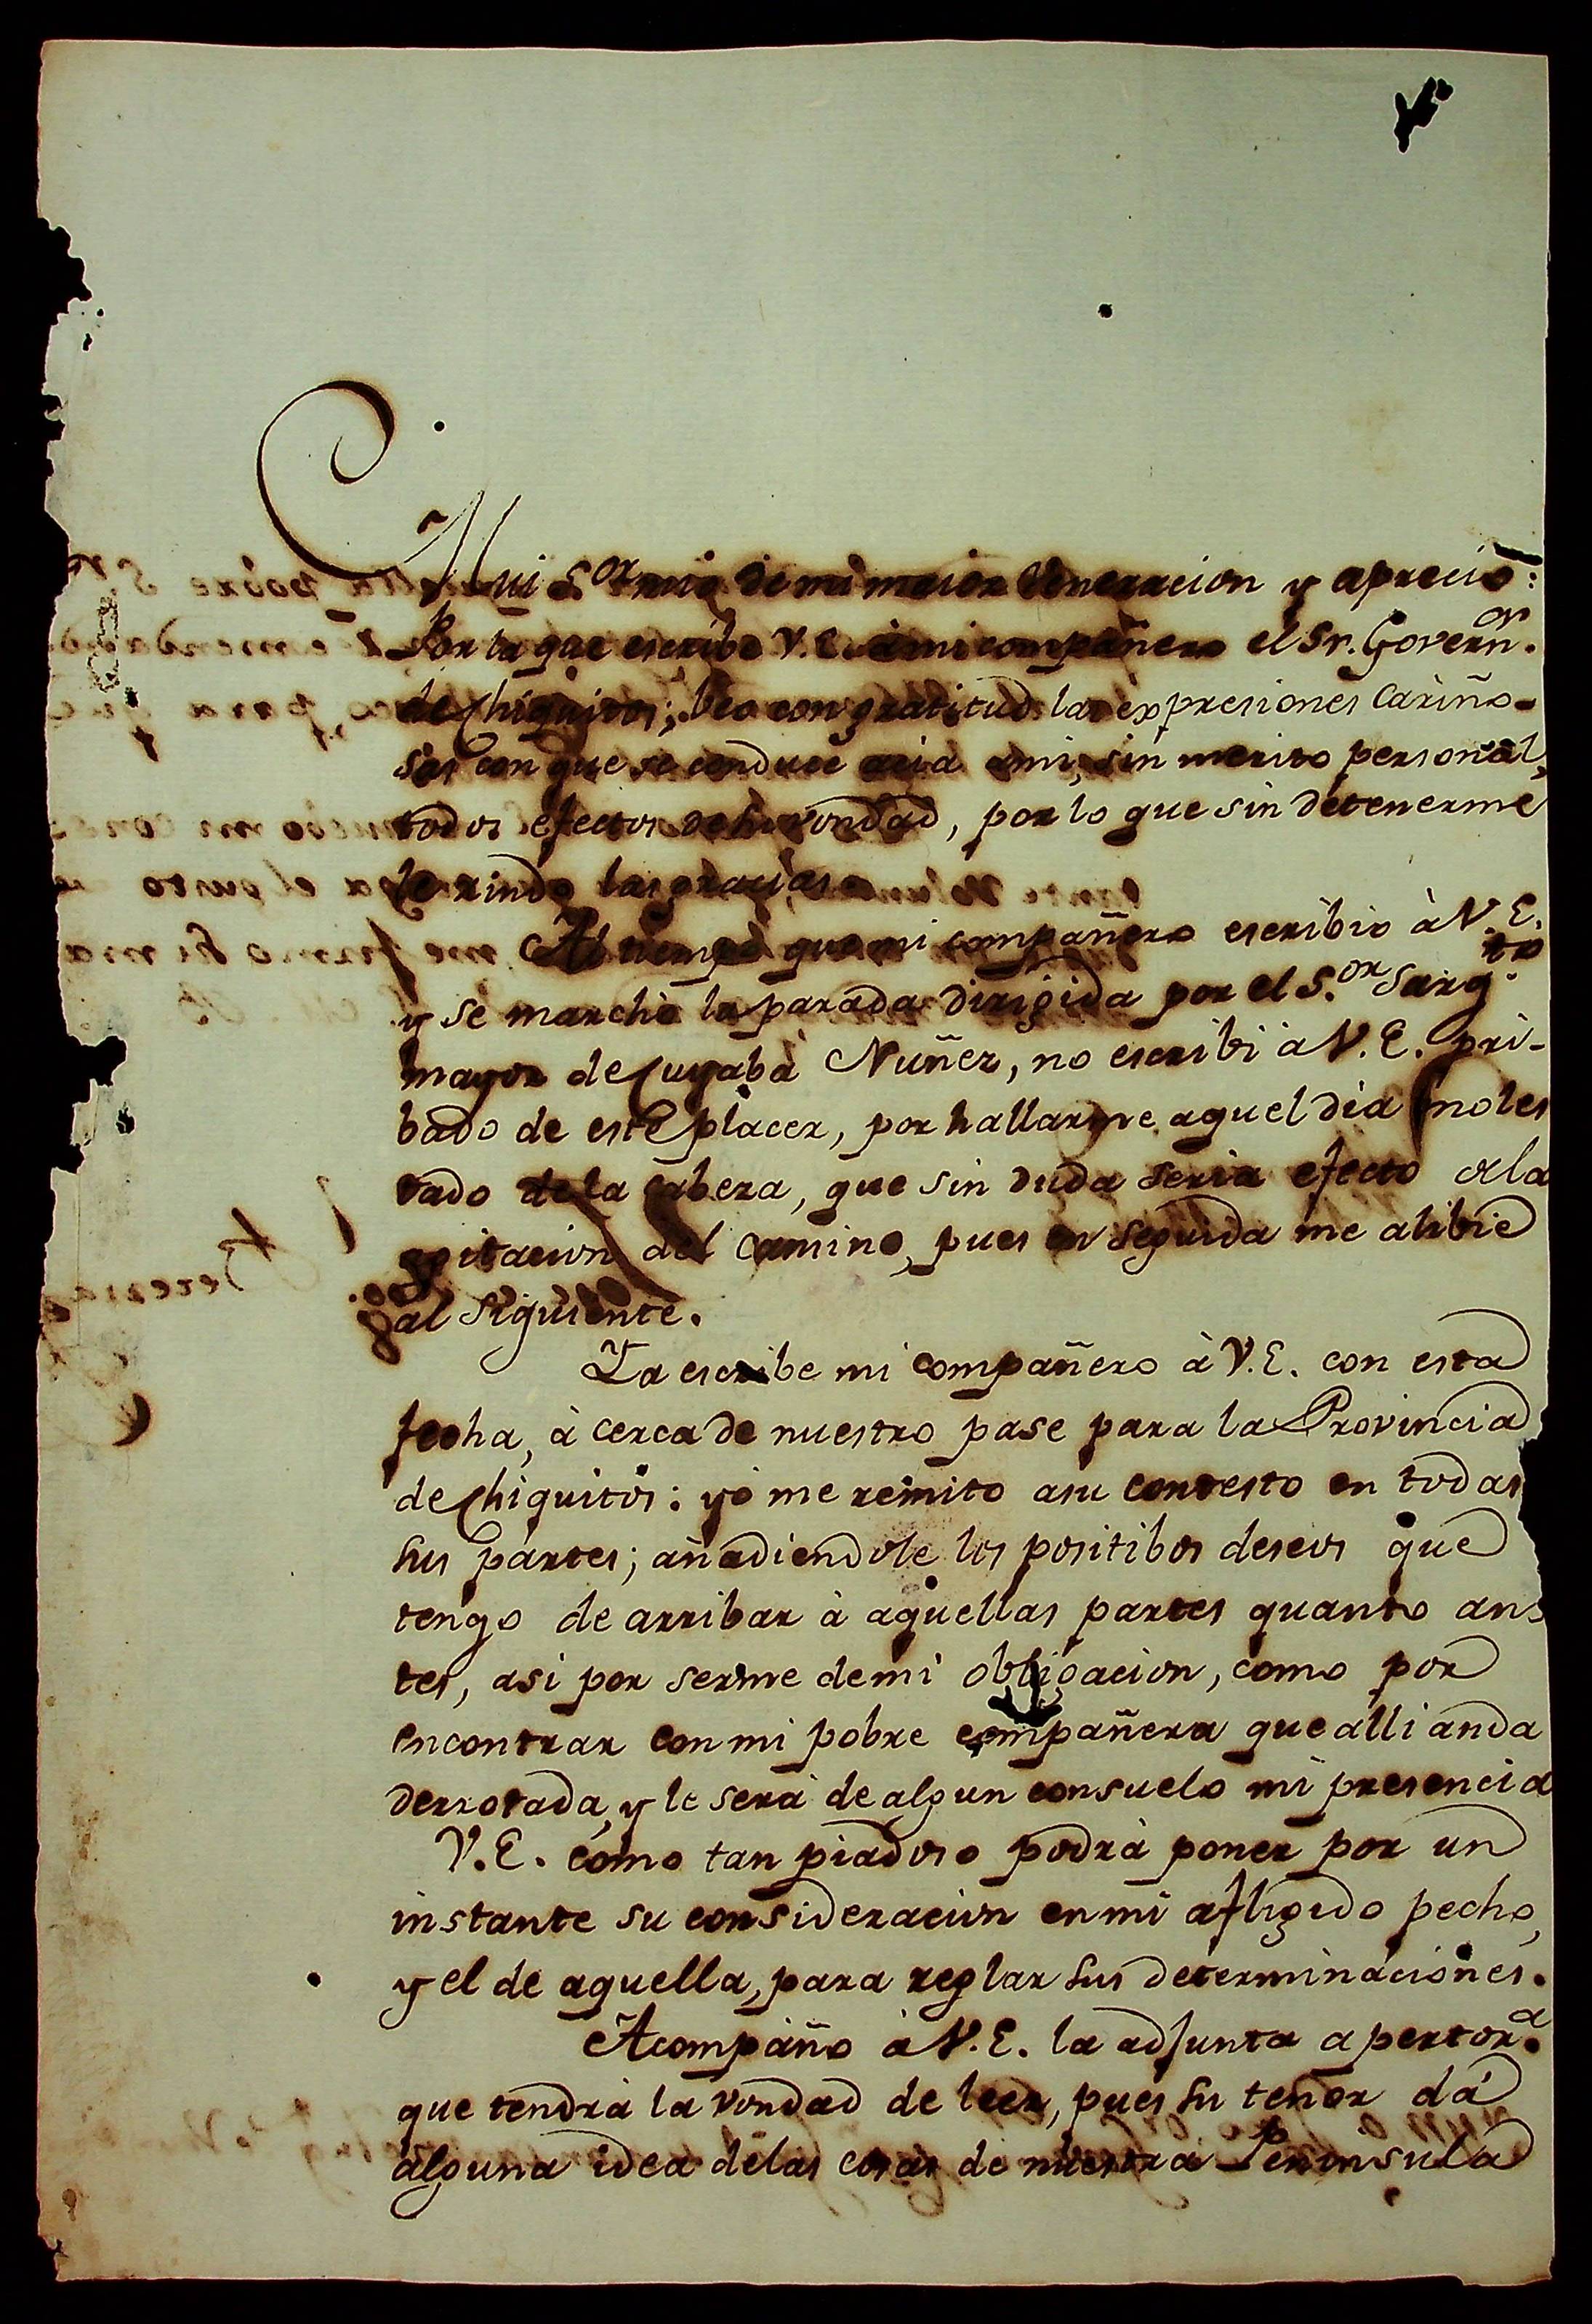 Mui S.or mio de mi maior Veneracion y aprecio:
Por la que escribe V.E. à mi compañero el Sr. Governor.
de Chiquitos; Veo con gratitud las expresiones Cariño-
sas con que se conduce acia ami, sin merito personal,
todos efectos de su vondad, por lo que sin detenerme
le rindo las gracias.
Al tiempo que mi compañero escribio à V.E.
y se marchò la parada dirigida por el S.or Sargto.
mayor de Cuyabà Nuñez, no escribi à V.E. pri-
bado de este placer, por hallarme aquel dia moles
tado de la cabeza, que sin duda seria efecto dla
agitacion del camino, pues en seguida me alibie
al siguiente.
Ya escribe mi compañero à V.E. con esta
fecha, à cerca de nuestro pase para la Provincia
de Chiquitos: yo me remito asu contesto en todas
sus partes; añadiendole los positibos deseos que
tengo de arribar à aquellas partes quanto an
tes, asi por serme demi obligacion, como por
encontrar con mi pobre compañera que alli anda
derrotada, y le serà de algun consuelo mi presencia
V.E. como tan piadoso podrà poner por un
instante su consideracion enmi afligido pecho,
y el de aquella, para reglar sus determinaciones.
Acompaño à V.E. la adjunta apertora.
que tendrà la vondad de leer, pues su tenor dá
alguna idea delas cosas de nuestra Peninsula